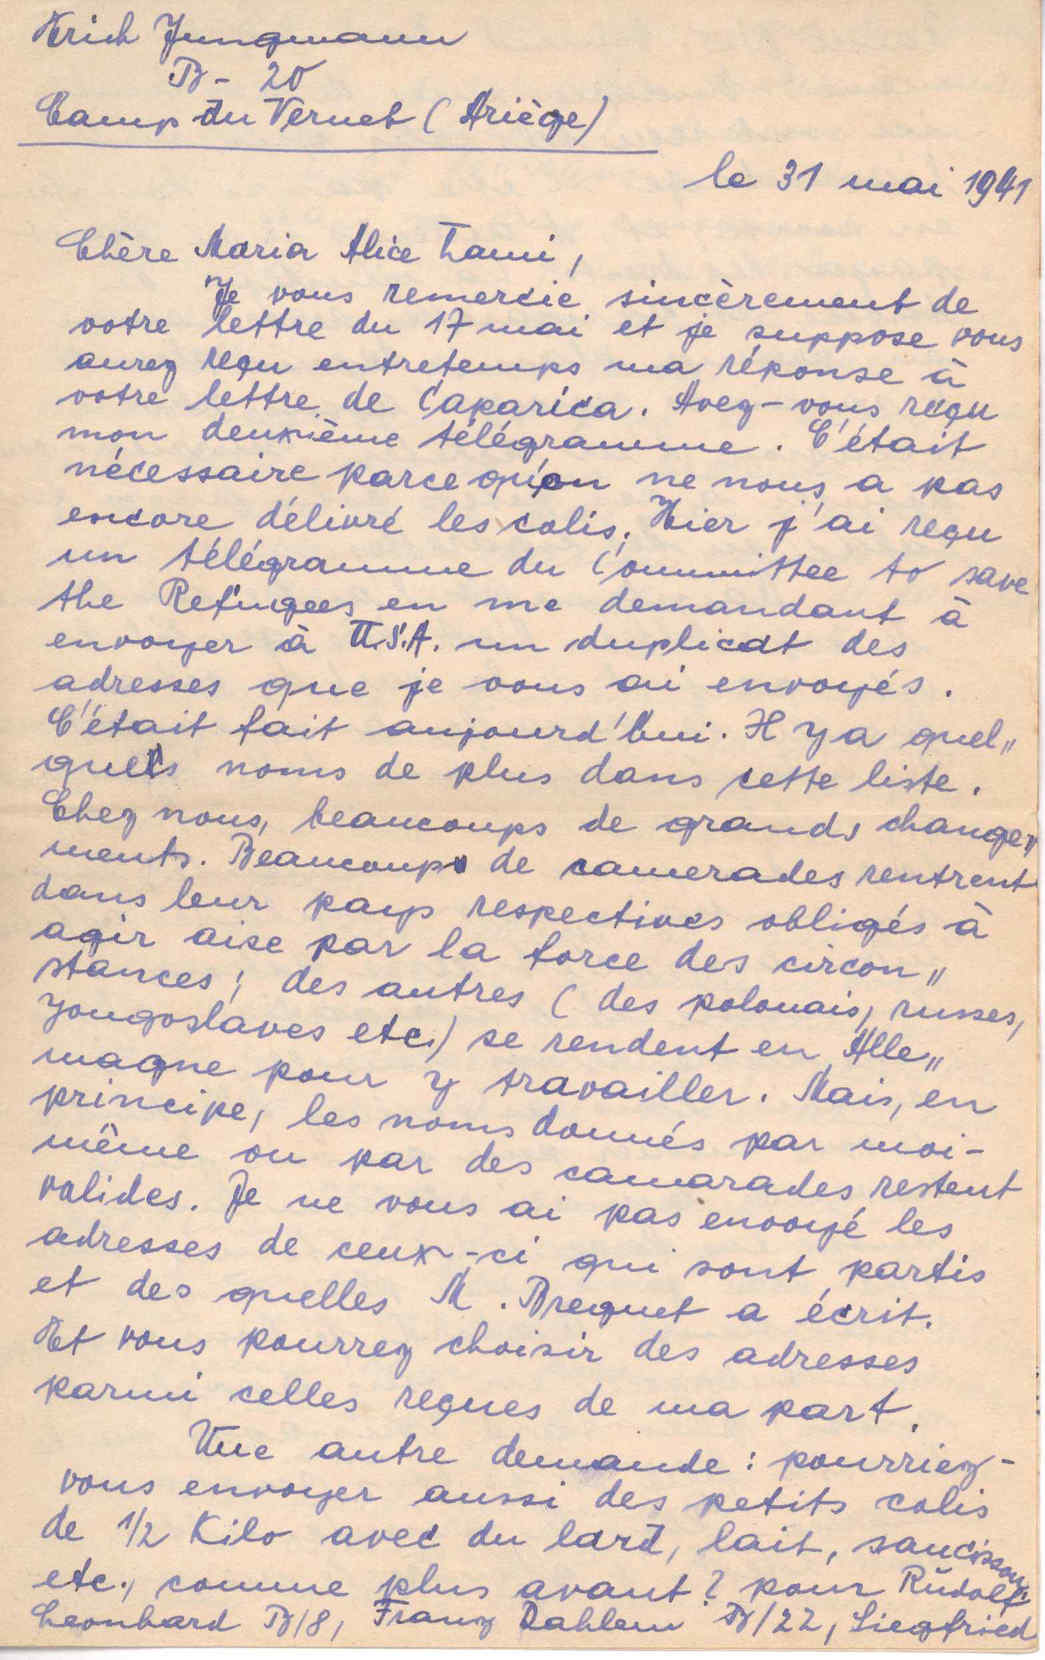 Erich Jungmann
B - 20
Camp du Vernet (Ariège)
le 31 mai 1941
Chère Maria Alice Lami,
Je vous remercie sincèrement de
votre lettre du 17 mai et je suppose vous
aurez reçu entretemps ma réponse à
votre lettre de Caparica. Avez-vous reçu
mon deuxième télégramme. C'était
nécessaire parce qu'on ne nous a pas
encore délivré les colis. Hier j'ai reçu
un télégramme du Committee to save
the Refugees en me demandant à
envoyer à U.S.A. un duplicat des
adresses que je vous ai envoyés.
C'était fait aujourd'hui. Il y a quel„
ques noms de plus dans cette liste.
Chez nous, beaucoups de grands change„
ments. Beaucoups de camerades rentrent
dans leur pays respectives obligés à
agir aise par la force des circon„
stances; des autres (des polonais, russes,
yougoslaves etc.) se rendent en Alle„
magne pour y travailler. Mais, en
principe, les noms donnés par moi-
même ou par des camarades restent
valides. Je ne vous ai pas envoyé les
adresses de ceux-ci qui sont partis
et des quelles M. Breguet a écrit.
Et vous pourrez choisir des adresses
parmi celles reçues de ma part.
Une autre demande: pourriez-
vous envoyer aussi des petits colis
de 1/2 Kilo avec du lard, lait, saucisson
etc., comme plus avant? pour Rudolf
Leonhard B/8, Franz Dahlem B/22, Siegfried